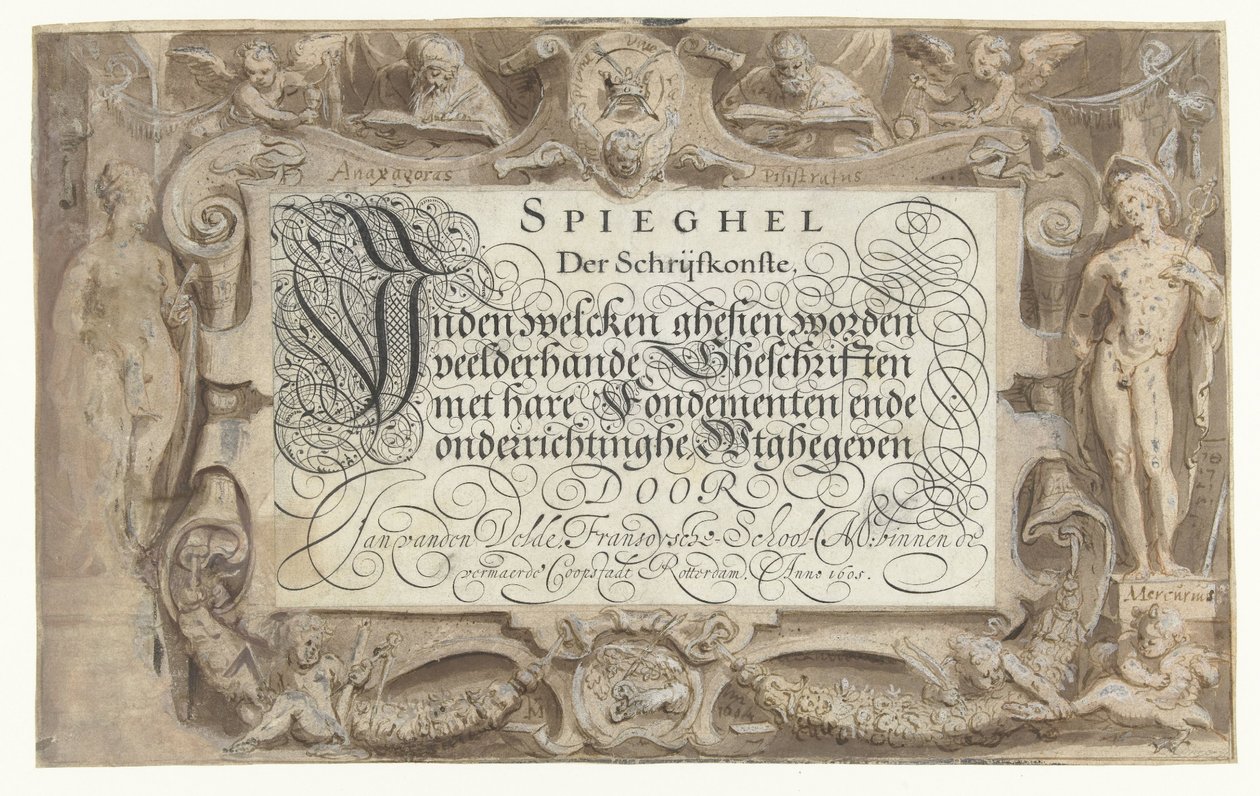 Anaxagoras
Pisistratus
SPIEGHEL
Der Schrijfkonste,
Inden welcken ghesien worden
veelderhande Gheschriften
met hare Fondementen ende
onderrichtinghe. Wtghegeven
DOOR
Jan vanden Velde, Fransoysche-School-M: binnen de
vermaerde Coopstadt Rotterdam. Anno 1605.
Mercurius